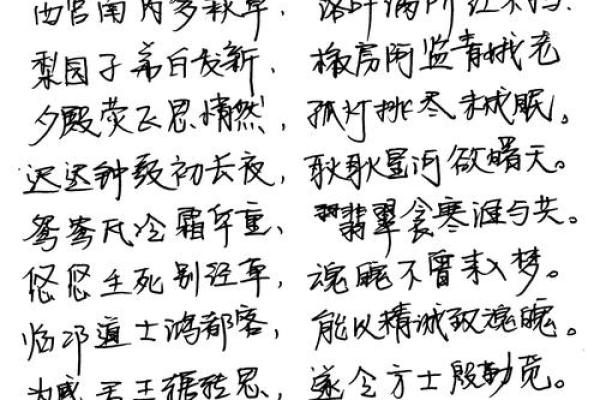 西宫南内多秋草，落叶满阶红不扫。
梨园子弟白发新，椒房阿监青娥老
夕殿荧飞思悄然，孤灯挑尽未成眠。
迟迟钟鼓初长夜，耿耿星河欲曙天。
鸳鸯瓦冷霜华重、翡翠衾寒谁与共。
悠悠生死别经年，魂魄不曾来入梦。
临邛道士鸿都客，能以精诚致魂魄。
为感君王辗转思，遂令方士殷勤觅。